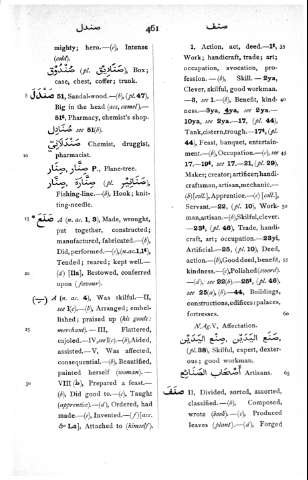 صندل
461
صنف
mighty; hero.—(c), Intense
(cold).
صُنْدُوق (pl. صَنَادِيق), Box;
case, chest, coffer; trunk.
صَنْدَل 51, Sandal-wood.—(b), (pl. 47),
Big in the head (ass, camel),—
51⁶, Pharmacy, chemist's shop.
صَنَادِل see 51(b).
صَنْدَلَانِيّ Chemist, druggist,
pharmacist.
صِنَّار P., Plane-tree.
صِنَّارَة (pl. صَنَانِير),
Fishing-line.—(b), Hook; knit-
ting-needle.
صَنَعَ A (n. ac. 1, 3), Made, wrought,
put together, constructed;
manufactured, fabricated.—(b),
Did, performed.—(c),
Tended; reared; kept well.—
(d) [IIa], Bestowed, conferred
upon (favour).
A (n. ac. 4), Was skilful.—II,
see I(c).—(b), Arranged; embel-
lished; praised up (his goods:
merchant).—III, Flattered,
cajoled.—IV, see I(c).—(b), Aided,
assisted.—V, Was affected,
consequential.—(b), Beautified,
painted herself (woman).—
VIII (ba), Prepared a feast.—
(b), Did good to.—(c), Taught
(apprentice).—(d), Ordered, had
made.—(e), Invented.—(f) [acc.
& La], Attached to himself.
1, Action, act, deed.—
Work; handicraft, trade; art;
occupation, avocation, pro-
fession.—(b), Skill.—2ya,
Clever, skilful, good workman.
—3, see 1.—(b), Benefit, kind-
ness.—3ya, 4ya, see 2ya.—
10ya, see 2ya.—17, (pl. 44),
Tank, cistern, trough.—17⁶, (pl.
44), Feast, banquet, entertain-
ment.—(b), Occupation.—(c), see
17.—19⁶, see 17.—21, (pl. 29),
Maker; creator; artificer; handi-
craftsman, artisan, mechanic.—
(b) [coll.], Apprentice.—(c) [coll.],
Servant.—22, (pl. 10), Work-
man, artisan.—(b), Skilful, clever.
—23⁶, (pl. 46), Trade, handi-
craft, art; occupation.—23yi,
Artificial.—25, (pl. 10), Deed,
action.—(b), Good deed, benefit,
kindness.—(c), Polished (sword).
—(d), see 22(b).—25⁶, (pl. 46),
see 25(a), (b).—44, Buildings,
constructions, edifices; palaces,
fortresses.
N. Ag. V, Affectation.
صَنَع الْيَدَيْن, صِنْع الْيَدَيْن,
(pl. 38), Skilful, expert, dexter-
ous; good workman.
أَصْحَاب الصَّنَائِع Artisans.
صنف II, Divided, sorted, assorted,
classified.—(b), Composed,
wrote (book).—(c), Produced
leaves (plant).—(d), Forged